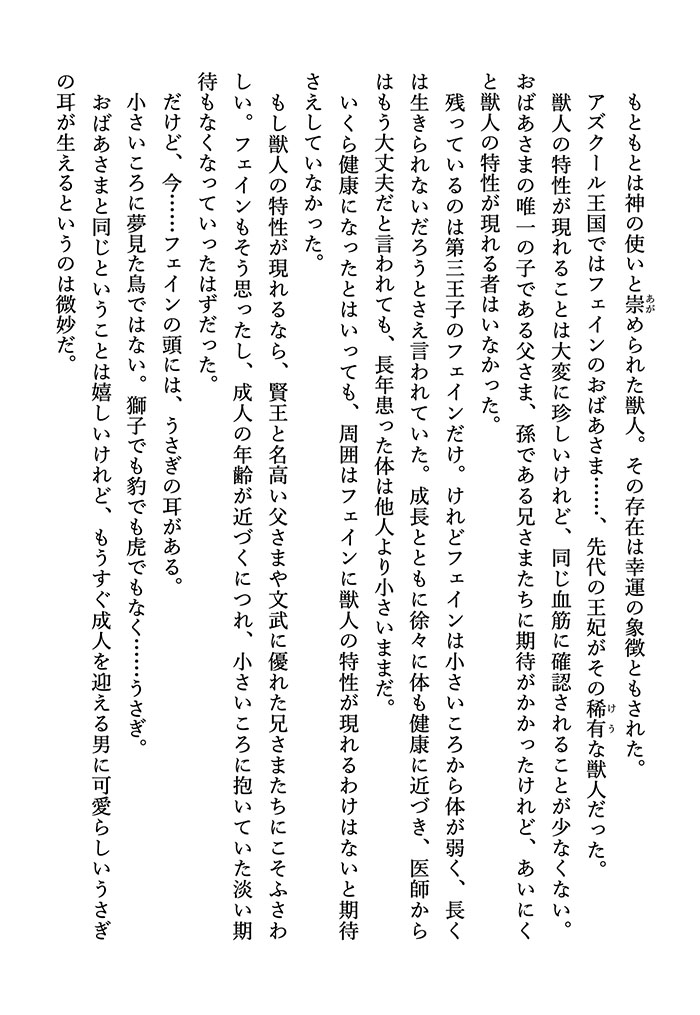 もともとは神の使いと崇められた獣人。その存在は幸運の象徴ともされた。
アズクール王国ではフェインのおばあさま……、先代の王妃がその稀有な獣人だった。
獣人の特性が現れることは大変に珍しいけれど、同じ血筋に確認されることが少なくない。
おばあさまの唯一の子である父さま、孫である兄さまたちに期待がかかったけれど、あいにく
と獣人の特性が現れる者はいなかった。
残っているのは第三王子のフェインだけ。けれどフェインは小さいころから体が弱く、長く
は生きられないだろうとさえ言われていた。成長とともに徐々に体も健康に近づき、医師から
はもう大丈夫だと言われても、長年患った体は他人より小さいままだ。
いくら健康になったとはいっても、周囲はフェインに獣人の特性が現れるわけはないと期待
さえしていなかった。
もし獣人の特性が現れるなら、賢王と名高い父さまや文武に優れた兄さまたちにこそふさわ
しい。フェインもそう思ったし、成人の年齢が近づくにつれ、小さいころに抱いていた淡い期
待もなくなっていったはずだった。
だけど、今……フェインの頭には、うさぎの耳がある。
小さいころに夢見た鳥ではない。獅子でも豹でも虎でもなく……うさぎ。
おばあさまと同じということは嬉しいけれど、もうすぐ成人を迎える男に可愛らしいうさぎ
の耳が生えるというのは微妙だ。